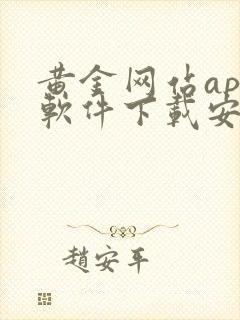 黄金网佔ap
軟件下載安
趙安平